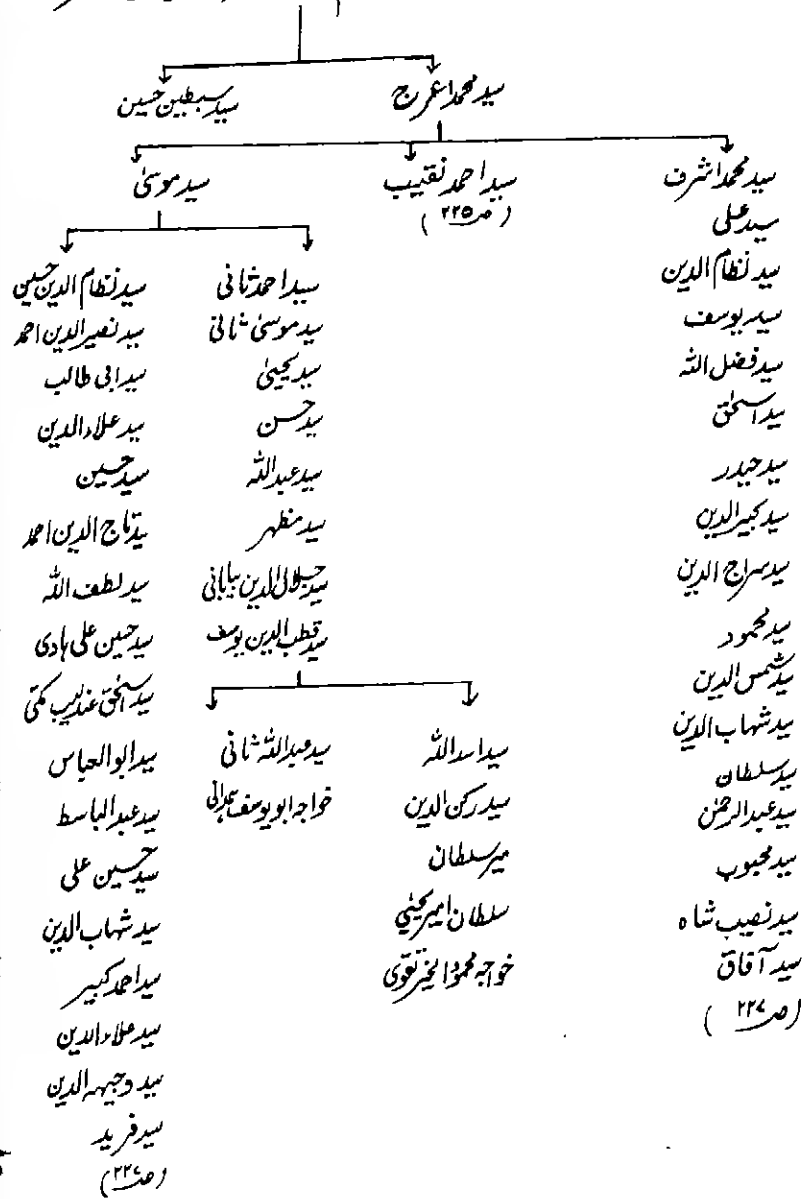 سید محمد اعرج
سید سبطین حسین
سید محمد اشرف
سید علی
سید نظام الدین
سید یوسف
سید فضل اللہ
سید اسحٰق
سید حیدر
سید کبیر الدین
سید سراج الدین
سید محمود
سید شمس الدین
سید شہاب الدین
سید سلطان
سید عبد الرحمٰن
سید محبوب
سید نصیب شاہ
سید آفاق
(ص ۲۲۷)
سید احمد نقیب
(ص ۲۲۵)
سید موسیٰ
سید احمد ثانی
سید موسیٰ ثانی
سید یحییٰ
سید حسن
سید عبد اللہ
سید مظہر
سید جلال الدین بیابانی
سید قطب الدین یوسف
سید اسد اللہ
سید رکن الدین
میر سلطان
سلطان امیر یحییٰ
خواجہ محمود الخیر تقوی
سید عبد اللہ ثانی
خواجہ ابو یوسف ہمدانی
سید نظام الدین حسین
سید نصیر الدین احمد
سید ابی طالب
سید علاء الدین
سید حسین
سید تاج الدین احمد
سید لطف اللہ
سید حسین علی ہادی
سید اسحٰق عندلیب مکی
سید ابو العباس
سید عبد الباسط
سید حسین علی
سید شہاب الدین
سید احمد کبیر
سید علاء الدین
سید وجیہہ الدین
سید فرید
(ص ۲۲۷)